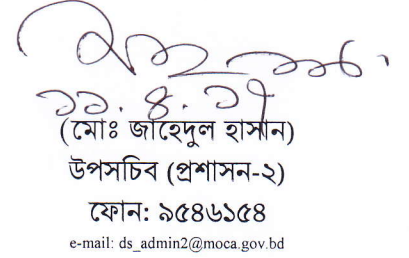 (মোঃ জাহেদুল হাসান)
উপসচিব (প্রশাসন-২)
ফোন: ৯৫৪৬১৫৪
e-mail: ds_admin2@moca.gov.bd